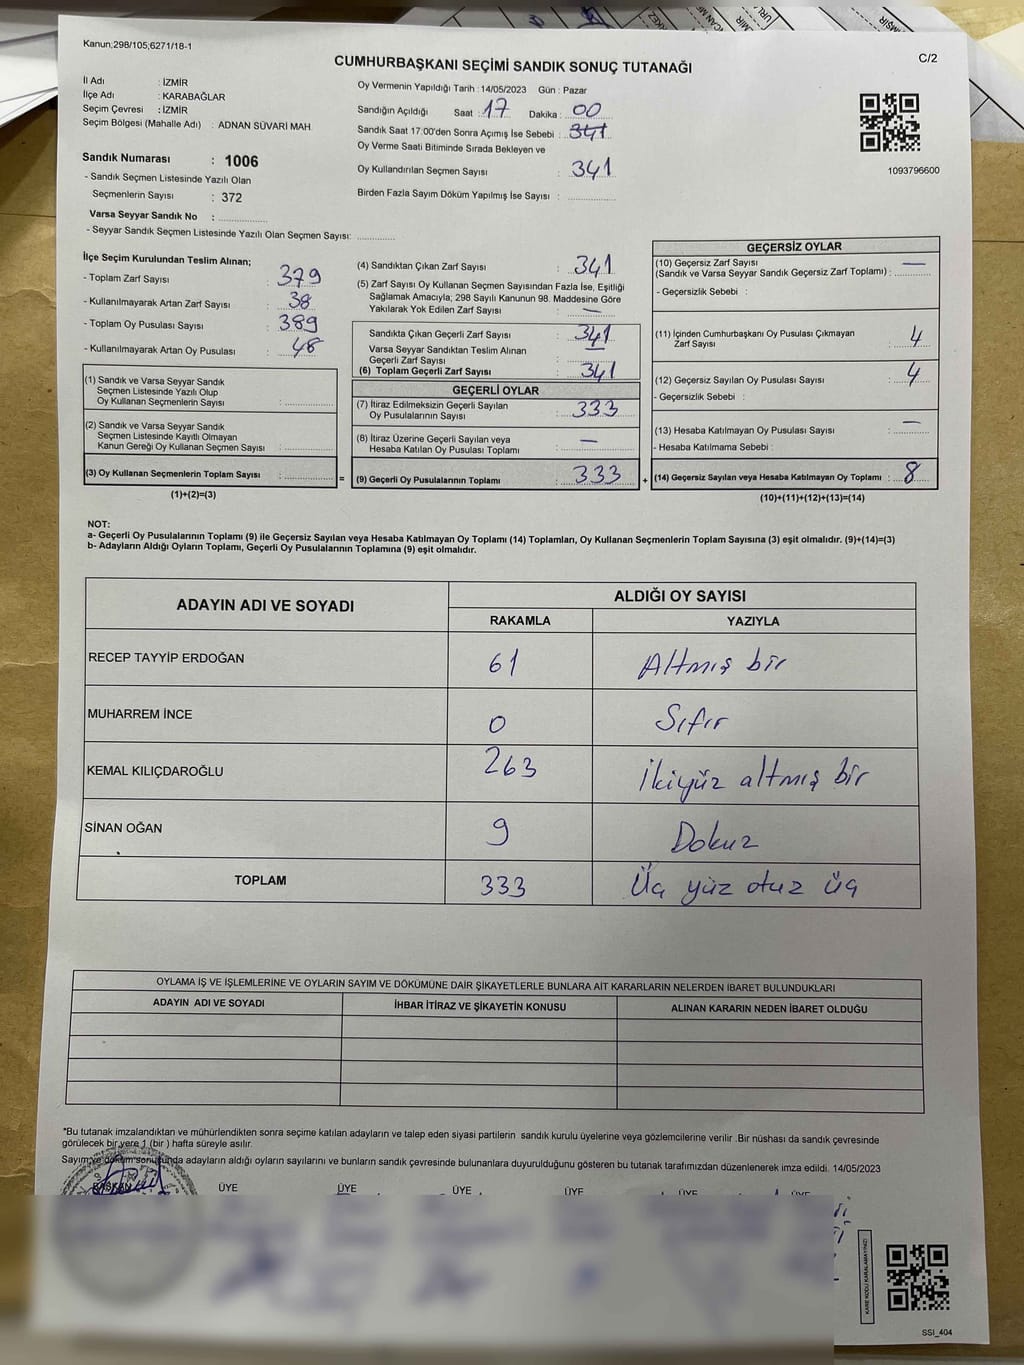 Kanun;298/105;6271/18-1
C/2
CUMHURBAŞKANI SEÇİMİ SANDIK SONUÇ TUTANAĞI
İl Adı : İZMİR
İlçe Adı : KARABAĞLAR
Seçim Çevresi : İZMİR
Seçim Bölgesi (Mahalle Adı) : ADNAN SÜVARİ MAH
Sandık Numarası : 1006
- Sandık Seçmen Listesinde Yazılı Olan
Seçmenlerin Sayısı : 372
Varsa Seyyar Sandık No :
- Seyyar Sandık Seçmen Listesinde Yazılı Olan Seçmen Sayısı:
Oy Vermenin Yapıldığı Tarih : 14/05/2023 Gün : Pazar
Sandığın Açıldığı Saat : 17 Dakika : 00
Sandık Saat 17:00'den Sonra Açımış İse Sebebi : 341
Oy Verme Saati Bitiminde Sırada Bekleyen ve
Oy Kullandırılan Seçmen Sayısı : 341
Birden Fazla Sayım Döküm Yapılmış İse Sayısı :
1093796600
İlçe Seçim Kurulundan Teslim Alınan;
- Toplam Zarf Sayısı : 379
- Kullanılmayarak Artan Zarf Sayısı : 38
- Toplam Oy Pusulası Sayısı : 389
- Kullanılmayarak Artan Oy Pusulası : 48
(1) Sandık ve Varsa Seyyar Sandık
Seçmen Listesinde Yazılı Olup
Oy Kullanan Seçmenlerin Sayısı :
(2) Sandık ve Varsa Seyyar Sandık
Seçmen Listesinde Kayıtlı Olmayan
Kanun Gereği Oy Kullanan Seçmen Sayısı :
(3) Oy Kullanan Seçmenlerin Toplam Sayısı :
(1)+(2)=(3)
=
(4) Sandıktan Çıkan Zarf Sayısı : 341
(5) Zarf Sayısı Oy Kullanan Seçmen Sayısından Fazla İse, Eşitliği
Sağlamak Amacıyla; 298 Sayılı Kanunun 98. Maddesine Göre
Yakılarak Yok Edilen Zarf Sayısı : —
Sandıkta Çıkan Geçerli Zarf Sayısı : 341
Varsa Seyyar Sandıktan Teslim Alınan
Geçerli Zarf Sayısı : —
(6) Toplam Geçerli Zarf Sayısı : 341
GEÇERLİ OYLAR
(7) İtiraz Edilmeksizin Geçerli Sayılan
Oy Pusulalarının Sayısı : 333
(8) İtiraz Üzerine Geçerli Sayılan veya
Hesaba Katılan Oy Pusulası Toplamı : —
(9) Geçerli Oy Pusulalarının Toplamı : 333
+
GEÇERSİZ OYLAR
(10) Geçersiz Zarf Sayısı —
(Sandık ve Varsa Seyyar Sandık Geçersiz Zarf Toplamı) :
- Geçersizlik Sebebi :
(11) İçinden Cumhurbaşkanı Oy Pusulası Çıkmayan
Zarf Sayısı : 4
(12) Geçersiz Sayılan Oy Pusulası Sayısı : 4
- Geçersizlik Sebebi :
(13) Hesaba Katılmayan Oy Pusulası Sayısı : —
- Hesaba Katılmama Sebebi :
(14) Geçersiz Sayılan veya Hesaba Katılmayan Oy Toplamı : 8
(10)+(11)+(12)+(13)=(14)
NOT:
a- Geçerli Oy Pusulalarının Toplamı (9) ile Geçersiz Sayılan veya Hesaba Katılmayan Oy Toplamı (14) Toplamları, Oy Kullanan Seçmenlerin Toplam Sayısına (3) eşit olmalıdır. (9)+(14)=(3)
b- Adayların Aldığı Oyların Toplamı, Geçerli Oy Pusulalarının Toplamına (9) eşit olmalıdır.
ADAYIN ADI VE SOYADI
ALDIĞI OY SAYISI
RAKAMLA YAZIYLA
RECEP TAYYİP ERDOĞAN 61 Altmış bir
MUHARREM İNCE 0 Sıfır
KEMAL KILIÇDAROĞLU 263 İkiyüz altmış bir
SİNAN OĞAN 9 Dokuz
TOPLAM 333 Üç yüz otuz üç
OYLAMA İŞ VE İŞLEMLERİNE VE OYLARIN SAYIM VE DÖKÜMÜNE DAİR ŞİKAYETLERLE BUNLARA AİT KARARLARIN NELERDEN İBARET BULUNDUKLARI
ADAYIN ADI VE SOYADI İHBAR İTİRAZ VE ŞİKAYETİN KONUSU ALINAN KARARIN NEDEN İBARET OLDUĞU
*Bu tutanak imzalandıktan ve mühürlendikten sonra seçime katılan adayların ve talep eden siyasi partilerin sandık kurulu üyelerine veya gözlemcilerine verilir .Bir nüshası da sandık çevresinde
görülecek bir yere 1 (bir ) hafta süreyle asılır.
Sayım ve döküm sonucunda adayların aldığı oyların sayılarını ve bunların sandık çevresinde bulunanlara duyurulduğunu gösteren bu tutanak tarafımızdan düzenlenerek imza edildi. 14/05/2023
BAŞKAN ÜYE ÜYE ÜYE ÜYE ÜYE ÜYE
KARE KODU KARALAMAYINIZ!
SSI_404